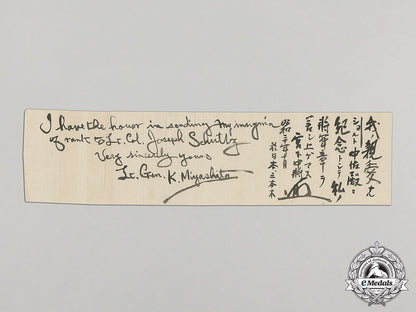 I have the honor in sending my insignia
of rank to Lt. Col. Joseph Schultz
Very sincerely yours
Lt. Gen. K. Miyashita
我ガ親愛ナル
中佐殿ニ
紀念トシテ私ノ
将軍章ヲ
上ゲマス
宮下中将
昭和二十年十月
日本
eMedals